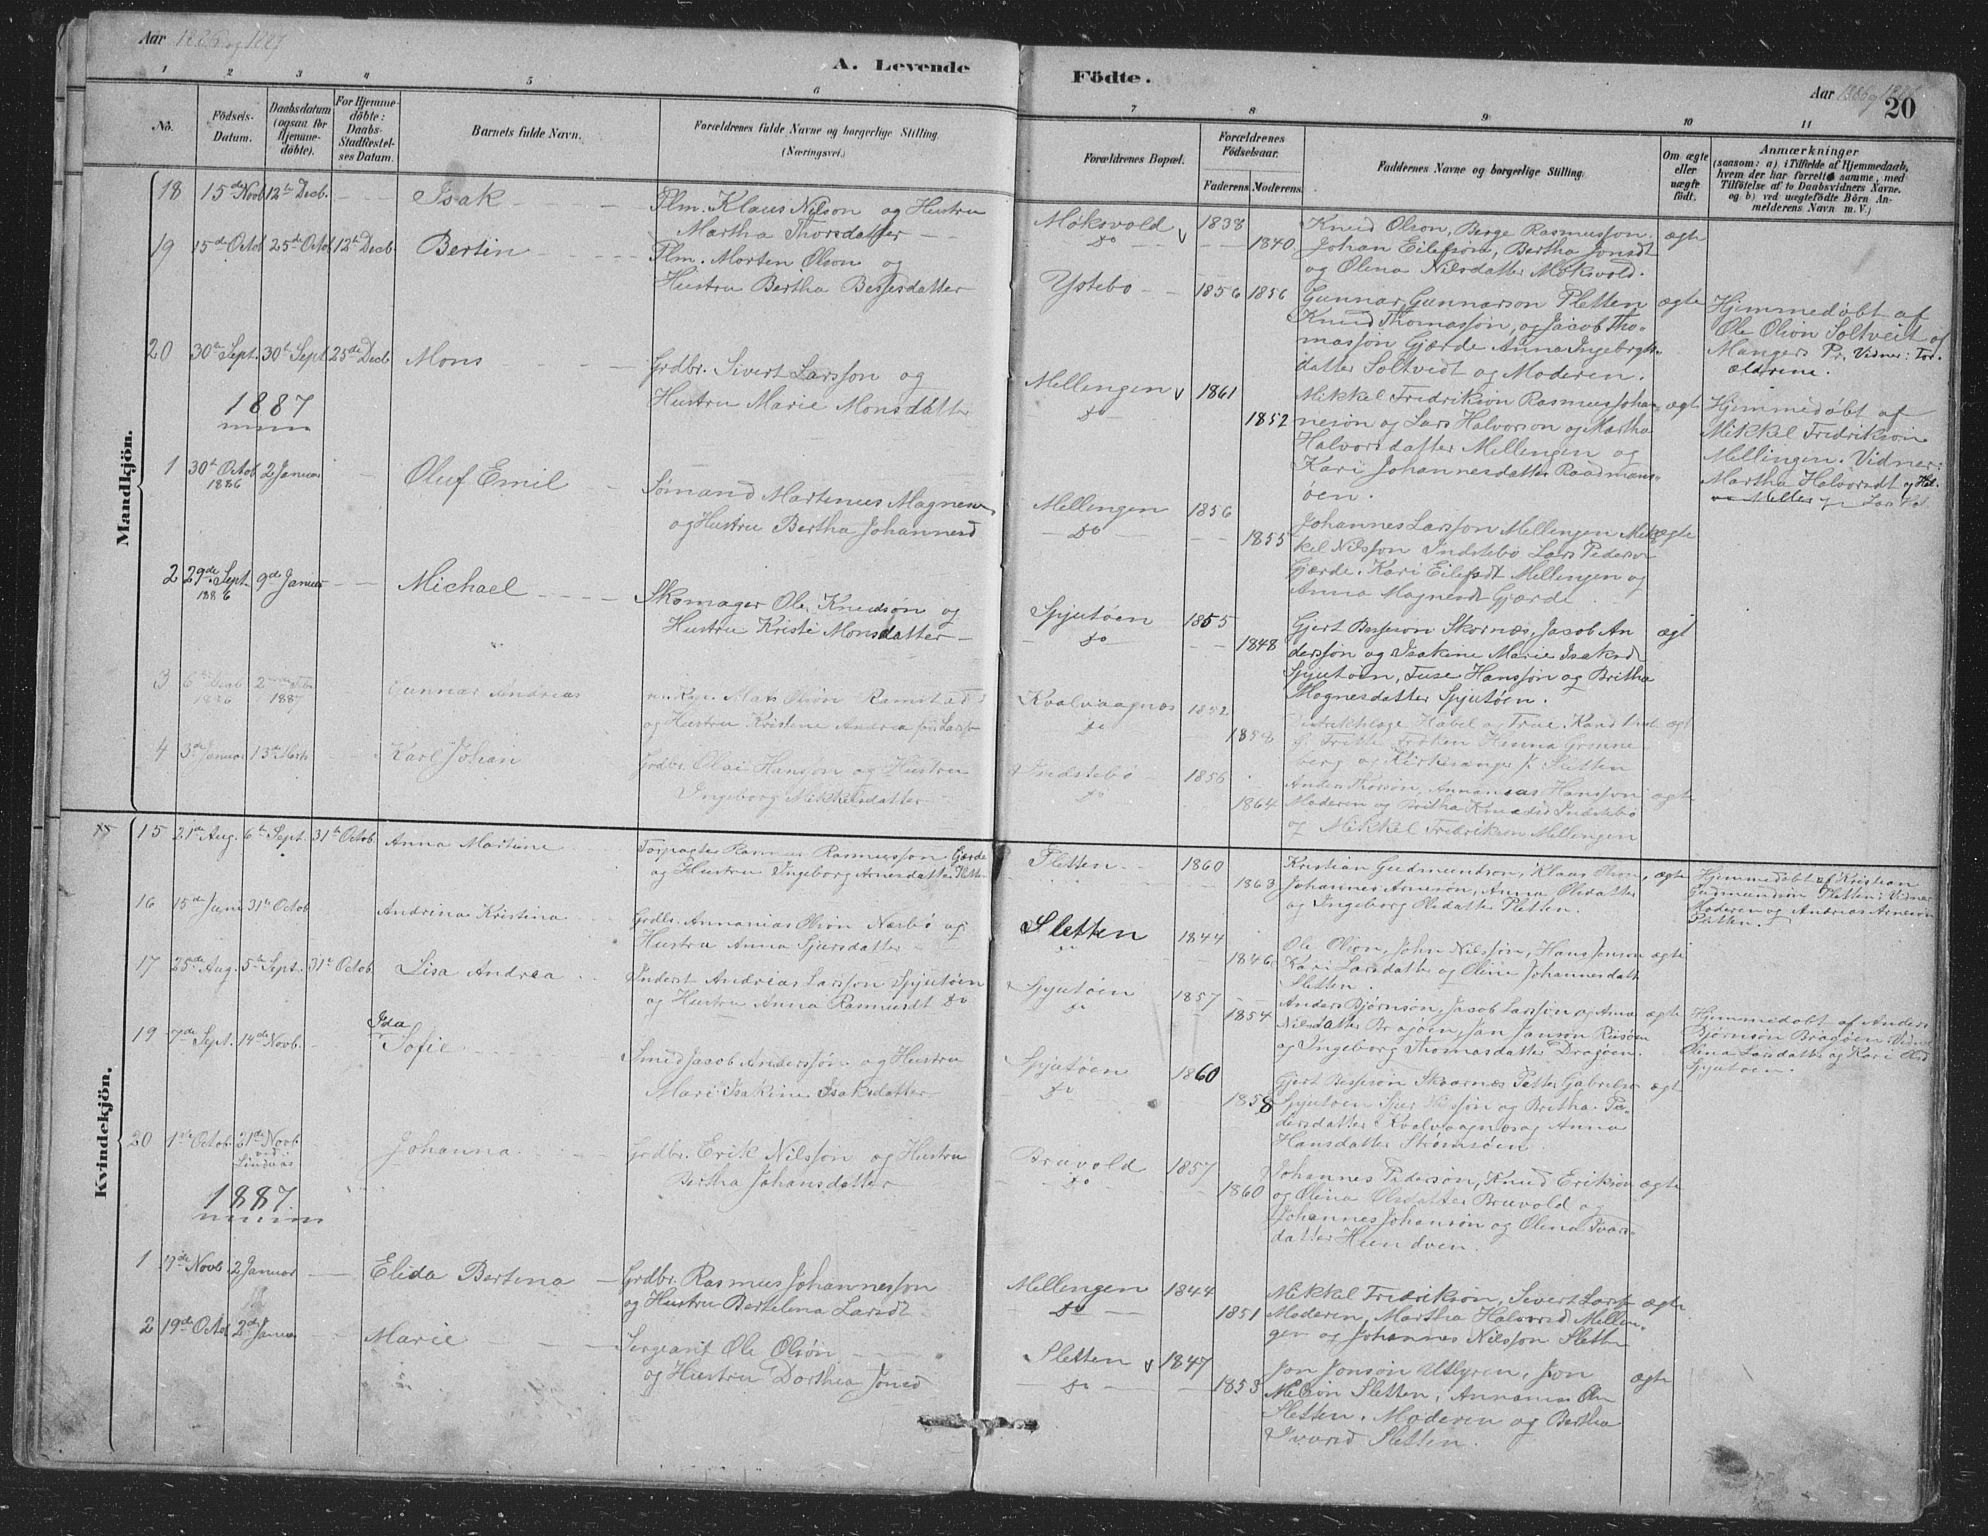 Aar 1886 og 1887
A. Levende Födte.
Aar 1886 og
20
1 2 3 4 5 6 7 8 9 10 11
No.
Födsels-Datum.
Daabsdatum (ogsaa for Hjemmedöbte).
For Hjemmedöbte: Daabs-Stadfæstelses Datum.
Barnets fulde Navn.
Forældrenes fulde Navne og borgerlige Stilling.
(Næringsvei.)
Forældrenes Bopæl.
Forældrenes Födselsaar.
Faderens. Moderens.
Faddernes Navne og borgerlige Stilling.
Om ægte eller uægte födt.
Anmærkninger
(saasom: a) i Tilfælde af Hjemmedaab, hvem der har forrettet samme, med Tilföielse af to Daabsvidners Navne, og b) ved uægtefödte Börn Anmelderens Navn m. V.)
Mandkjön.
18 15de Novb 12te Decb. Isak Plm. Klaus Nilson og Hustru
Martha Thorsdatter
Møksvold 1838
Do 1840
Knud Olson, Berge Rasmusson ægte
Johan Eilefson, Bertha Jonsdt
og Olena Nilsdatter Møksvold.
19 15de Octob 25de Octob 12te Decb Bertin Plm. Morten Olson og
Hustru Bertha Bessesdatter
Ystebø 1856 1856
Gunnar Gunnarson Sletten ægte
Knud Thomasson, og Jacob Tho-
masson Gjærde Anna Ingeborgs-
datter Soltvedt og Moderen.
Hjemmedøbt af
Ole Olson Soltveit af
Mangers Pr. Vidner: For-
ældrene.
20 30te Sept. 30te Sept 25de Decb Mons Grdbr. Sivert Larsson og
Hustru Marie Monsdatter
Mellingen 1861
Do 1852
Mikkel Fredrikson Rasmus Johan- ægte
nesøn og Lars Halvorson og Martha
Halvorsdatter Mellingen og
Kari Johannesdatter Raadmans-
øen.
Hjemmedøbt af
Mikkel Fredrikson
Mellingen. Vidner:
Martha Halvorsdt og
1887
1 30te Octob 1886 2 Januar Oluf Emil Sømand Martinus Magneson
og Hustru Bertha Johannesd
Mellingen 1856
Do 1855
Johannes Larsson Mellingen Mik- ægte
kel Nilsson Indstebø Lars Pederson
Gjærde. Kari Eilefsdt Mellingen og
Anna Magnesdt Gjærde
2 29de Sept 1886 9de Januar Michael Skomager Ole Knudsøn og
Hustru Kristi Monsdatter
Spjutøen 1855
Do 1848
Gjert Bessesøn Skornæs, Jacob An ægt
dersson og Isakine Marie Isaksdt
Spjutøen, Tuse Hansson og Britha
Mognesdatter Spjutøen.
3 6te Decb 1886 1887 Gunnar Andreas Mats Olsøn Ramstad
og Hustru Kristine Andrea
Kvalvaagnæs 1852
Do 1858
Distriktslæge Habel og Frue. ægt
Frøken Hanna Grønne
berg og Kirkesanger J. Sletten
4 3de Januar 13de Marts Karl Johan Grdbr. Olai Hansson og Hustru
Ingeborg Mikkelsdatter
Indstebø 1856
Do 1864
Anders Thorson, Annanias Hansson ægte
Moderen og Britha Knudsdt Indstebø
og Mikkel Fredrikson Mellingen
Kvindekjön.
15 21de Aug. 6te Sept. 31te Octob Anna Martine Forpagter Rasmus Rasmusson Gjærde
og Hustru Ingeborg Arnesdatter
Sletten 1860
1863
Kristian Gudmundson, Klaas Olson, ægte
Johannes Arnesøn, Anna Olsdatter
og Ingeborg Olsdatter Sletten.
Hjemmedøbt af Kristian
Gudmundson Sletten: Vidner
Moderen og Andreas Arnesøn
Sletten.
16 15de Juni 31te Octob Andrina Kristina Grdbr. Annanias Olson Næsbø og
Hustru Anna Sjursdatter
Sletten 1844
Do 1846
Ole Olson, John Nilsson, Hans Jonson ægte
Kari Larsdatter og Oline Johannesdatter
Sletten.
17 25de Aug. 5te Sept. 31te Octob. Lisa Andrea Inderst Andreas Larsson Spjutøen
og Hustru Anna Rasmusdt Do
Spjutøen 1857
Do 1854
Anders Bjørnson, Jacob Larsson og Anna ægte
Nilsdatter Bragøen, Jan Janson Riisøen
og Ingeborg Thomasdatter Dragøen.
Hjemmedøbt af Anders
Bjørnson Bragøen: Vidner
Olena Larsdatter og Kari Olsd
Spjutøen.
19 7de Sept. 14de Novb. Ida
Sofie Smed Jacob Andersson og Hustru
Mari Isakine Isaksdatter
Spjutøen 1860
Do 1858
Gjert Bessesøn Skaarnæs Petter Gabrielson ægt
Spjutøen Sjur Nilsson og Britha Pe-
dersdatter Kvalvaagnæs og Anna
Hansdatter Strømsøen
20 1ste Octob. 21de Novb. ved Lindaas Johanna Grdbr. Erik Nilsson og Hustru
Bertha Johansdatter
Bruvold 1857
Do 1860
Johannes Pederson, Knud Erikson ægte
og Olina Olsdatter Bruvold og
Johannes Johanson og Olena Ivars-
datter Hundven.
1887.
1 17de Novb 2 Januar Elida Bertina Grdbr. Rasmus Johannesson
og Hustru Bertelena Larsdt
Mellingen 1844
Do 1851
Mikkel Fredrikson, Sivert Larss ægte
Moderen, Martha Halvorsd Mellin-
gen og Johannes Nilsson Slett
2 19de Octob 2de Januar Marie Sergeant Ole Olsøn
og Hustru Dorthea Jonsd
Sletten 1847
Do 1853
Jon Jonson Utlyren, Jon ægte
Nilson Sletten, Annanias Ols
Sletten. Moderen og Bertha
Ivarsd Sletten.